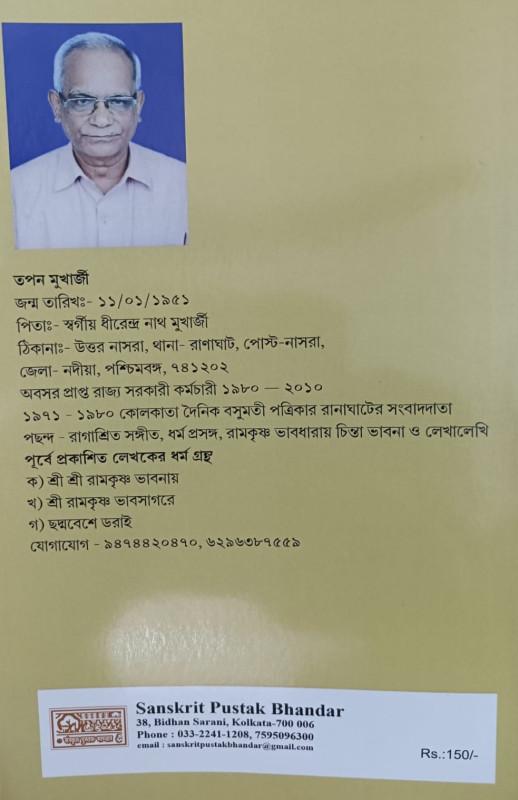 তপন মুখার্জী
জন্ম তারিখঃ- ১১/০১/১৯৫১
পিতাঃ- স্বর্গীয় ধীরেন্দ্র নাথ মুখার্জী
ঠিকানাঃ- উত্তর নাসরা, থানা- রাণাঘাট, পোস্ট-নাসরা,
জেলা- নদীয়া, পশ্চিমবঙ্গ, ৭৪১২০২
অবসর প্রাপ্ত রাজ্য সরকারী কর্মচারী ১৯৮০ — ২০১০
১৯৭১ - ১৯৮০ কোলকাতা দৈনিক বসুমতী পত্রিকার রানাঘাটের সংবাদদাতা
পছন্দ - রাগাশ্রিত সঙ্গীত, ধর্ম প্রসঙ্গ, রামকৃষ্ণ ভাবধারায় চিন্তা ভাবনা ও লেখালেখি
পূর্বে প্রকাশিত লেখকের ধর্ম গ্রন্থ
ক) শ্রী শ্রী রামকৃষ্ণ ভাবনায়
খ) শ্রী রামকৃষ্ণ ভাবসাগরে
গ) ছদ্মবেশে ডরাই
যোগাযোগ - ৯৪৭৪৪২০৪৭০, ৬২৯৬৩৮৭৫৫৯
Sanskrit Pustak Bhandar
38, Bidhan Sarani, Kolkata-700 006
Phone : 033-2241-1208, 7595096300
email : sanskritpustakbhandar@gmail.com
Rs.:150/-